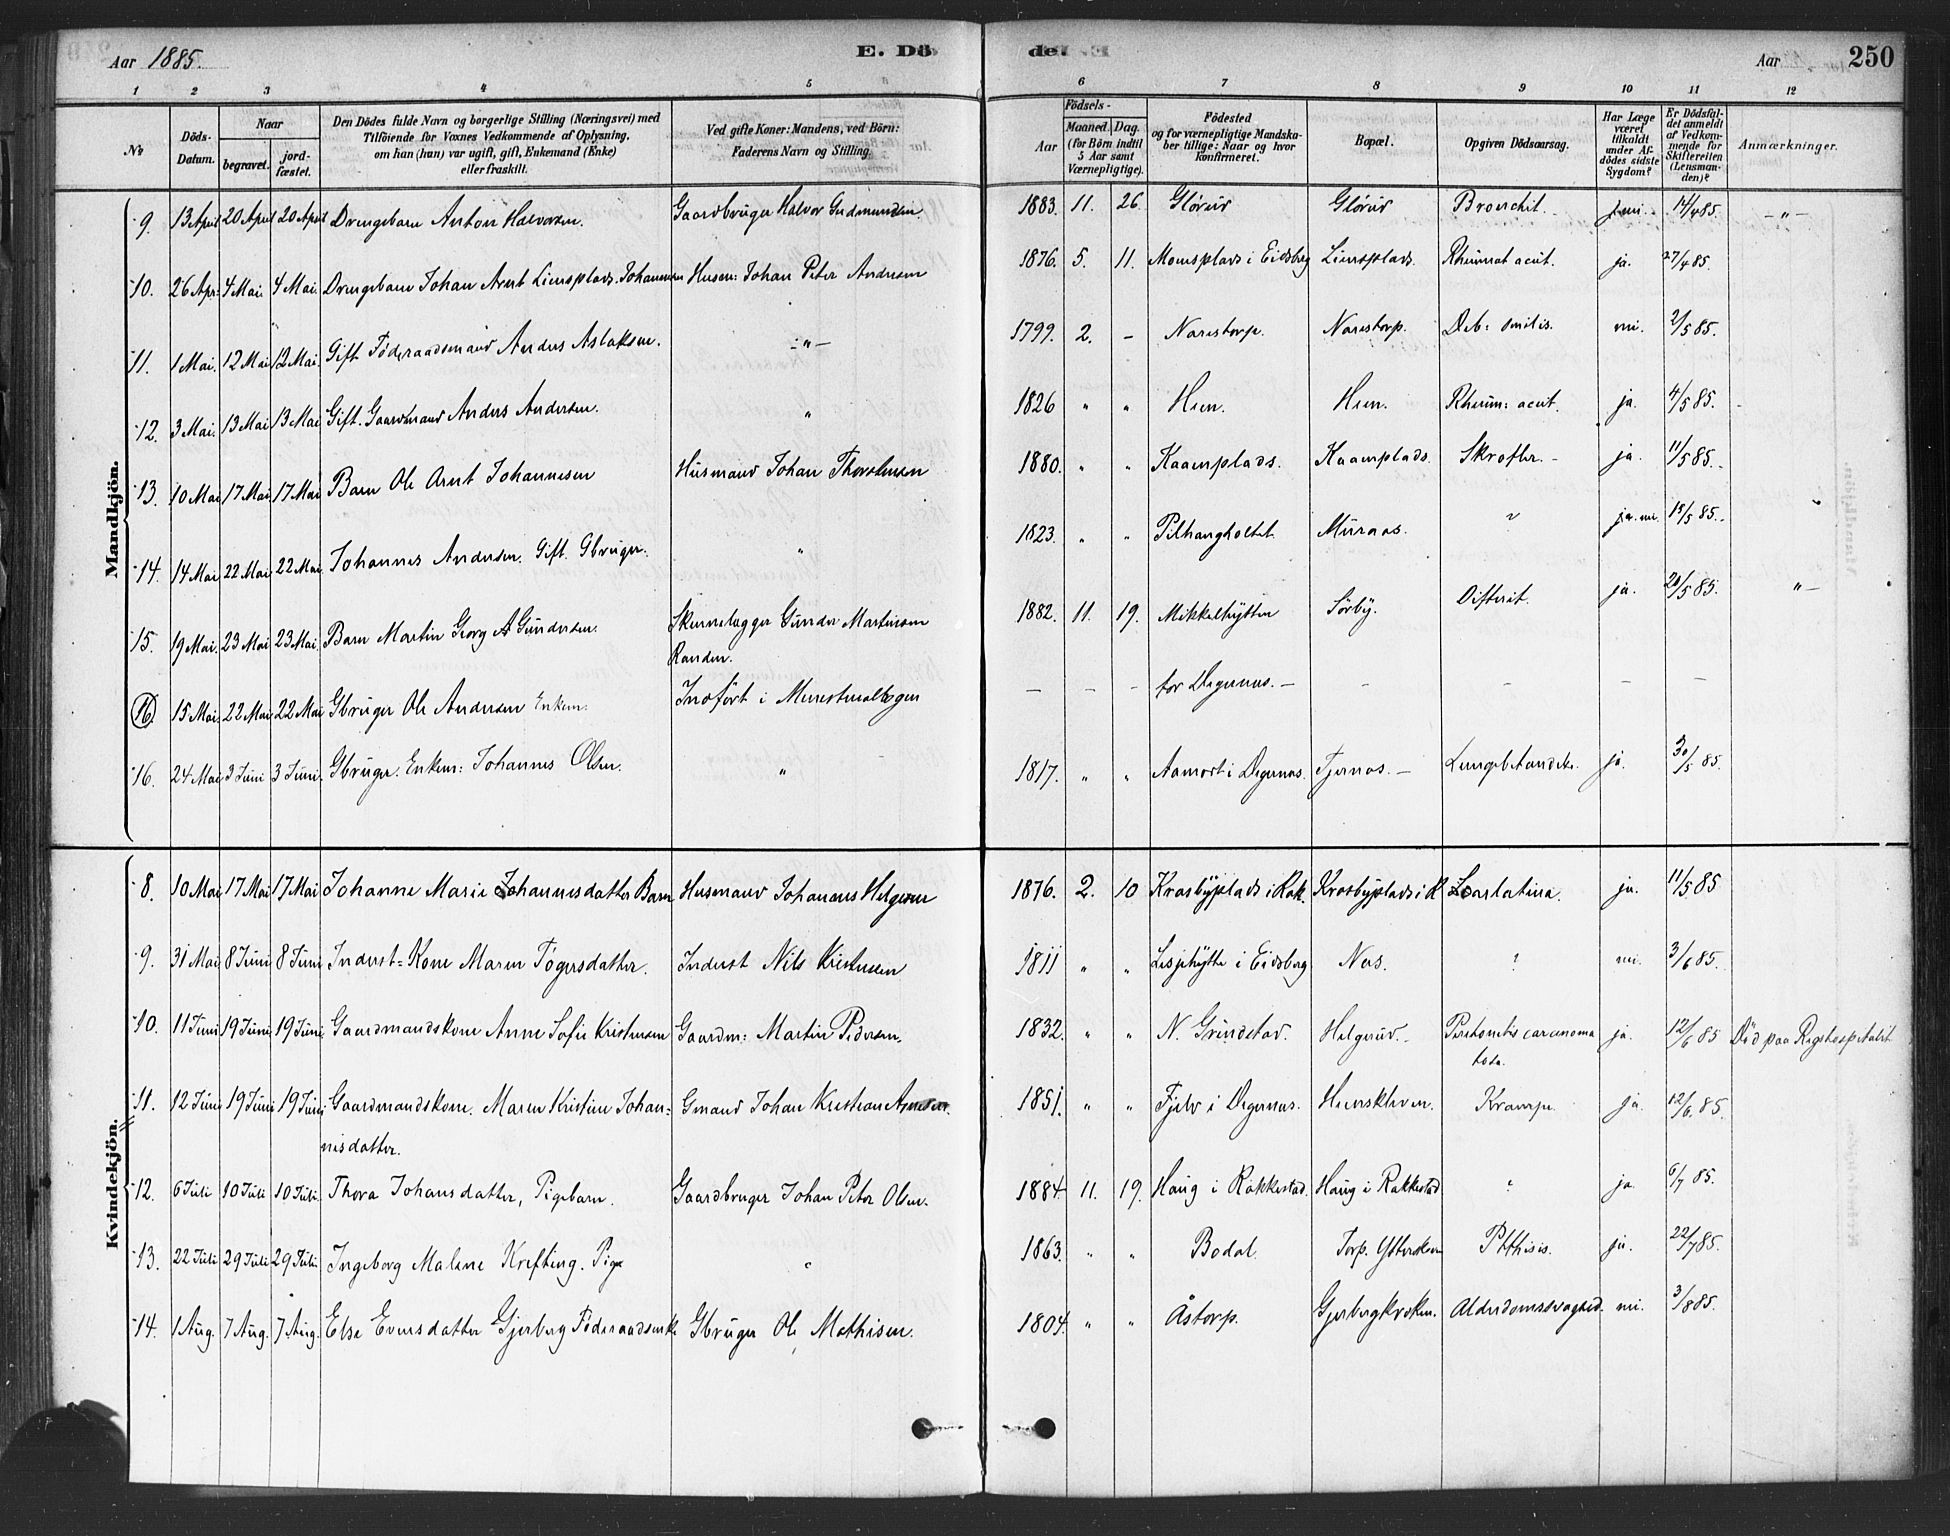 Aar 1885. E. Döde. E Aar 250
1 2 3 4 5 6 7 8 9 10 11 12
No Döds-Datum. Naar begravet. jordfæstet. Den Dödes fulde Navn og borgerlige Stilling (Næringsvei) med Tilföiende for Voxnes Vedkommende af Oplysning, om han (hun) var ugift, gift, Enkemand (Enke) eller fraskilt. Ved gifte Koner: Mandens, ved Börn: Faderens Navn og Stilling. Födsels- Aar Maaned. Dag. (for Börn indtil 5 Aar samt Værnepligtige). Födested og for værnepligtige Mandskaber tillige: Naar og hvor konfirmeret. Bopæl. Opgiven Dödsaarsag. Har Læge været tilkaldt under Afdödes sidste Sygdom? Er Dödsfaldet anmeldt af Vedkommende for Skifteretten (Lensmanden)? Anmærkninger.
Mandkjön.
9. 13 April 20 April 20 April Drengebarn Anton Halvorsen. Gaardbruger Halvor Gudmundsen 1883. 11. 26. Glörud Glörud Bronchit. nei. 14/4 85. - " -
10. 26 Apr: 4 Mai. 4 Mai. Drengebarn Johan Arnt Liensplads Johannesen Husm: Johan Peter Andersen 1876. 5. 11. Momsplads i Eidsberg Liensplads. Rheumat acut. ja. 27/4 85.
11. 1 Mai. 12 Mai 12 Mai. Gift Föderaadsmand Anders Aslaksen. - " - 1799. 2. - Narestorp. Narestorp. Deb: senilis. nei. 2/5 85.
12. 3 Mai. 13 Mai 13 Mai Gift. Gaardmand Anders Andersen. " 1826 " " Hien. Hien. Rheum: acut. ja. 4/5 85.
13. 10 Mai 17 Mai 17 Mai Barn Ole Arnt Johannesen Husmand Johan Thorstensen 1880. " " Kaaenplads. Kaaenplads. Skrofler. ja. 11/5 85.
14. 14 Mai 22 Mai 22 Mai. Johannes Andersen. Gift. Gbruger. " 1823. " " Pilhaugholtet Muraas. ? ja. nei. 15/5 85.
15. 19 Mai. 23 Mai 23 Mai. Barn Martin Georg A Gundersen. Skinnelægger Gunder Martinsen Randen. 1882. 11. 19. Mikkelhytten Sörby. Difterit. ja. 20/5 85. " -
(16) 15 Mai. 22 Mai 22 Mai Gbruger Ole Andersen Enkem. Indfört i Ministerialbogen - - - for Degernæs. - - - - -
16. 24 Mai 3 Juni 3 Juni. Gbruger. Enkem: Johannes Olsen. " 1817. " " Aamodt i Degernæs. Tjernæs. - Lungebetændelse. ja. 30/5 85.
Kvindekjön.
8. 10 Mai 17 Mai 17 Mai Johanne Marie Johannesdatter Barn Husmand Johannes Helgesen 1876. 2. 10 Krosbyplads i Rak. Krosbyplads i R Scarlatina. ja. 11/5 85
9. 31 Mai 8 Juni 8 Juni Inderst=Kone Maren Tögersdatter. Inderst Nils Kristensen 1811 " " Lesjehytte i Eidsberg Næs. ? nei. 3/6 85.
10. 11 Juni 19 Juni 19 Juni Gaardmandskone Anne Sofie Kristensen Gaardm: Martin Pedersen. 1832. " " N. Grindstad. Helgerud. Peritonitis carcinomatosa. ja. 12/6 85 Död paa Rigshospitalet
11. 12 Juni 19 Juni 19 Juni Gaardmandskone. Maren Kristine Johannisdatter. Gmand Johan Kristian Arnesen. 1851. " " Fjeld i Degernæs. Hienskleven. Krampe. ja. 12/6 85.
12. 6 Juli 10 Juli 10 Juli. Thora Johansdatter, Pigebarn. Gaardbruger Johan Peter Olsen. 1884. 11. 19. Haug i Rakkestad. Haug i Rakkestad ? ja. 6/7 85.
13. 22 Juli 29 Juli 29 Juli. Ingeborg Malene Krefting. Pige " 1863. " " Bodal. Torp. Ytterskoven Phthisis. ja. 22/7 85.
14. 1 Aug. 7 Aug. 7 Aug. Else Eversdatter Gjerberg Föderaadsenke Gbruger Ole Mathisen. 1804. " " Åstorp. Gjerbergkroken. Alderdomssvaghed. nei. 3/8 85.